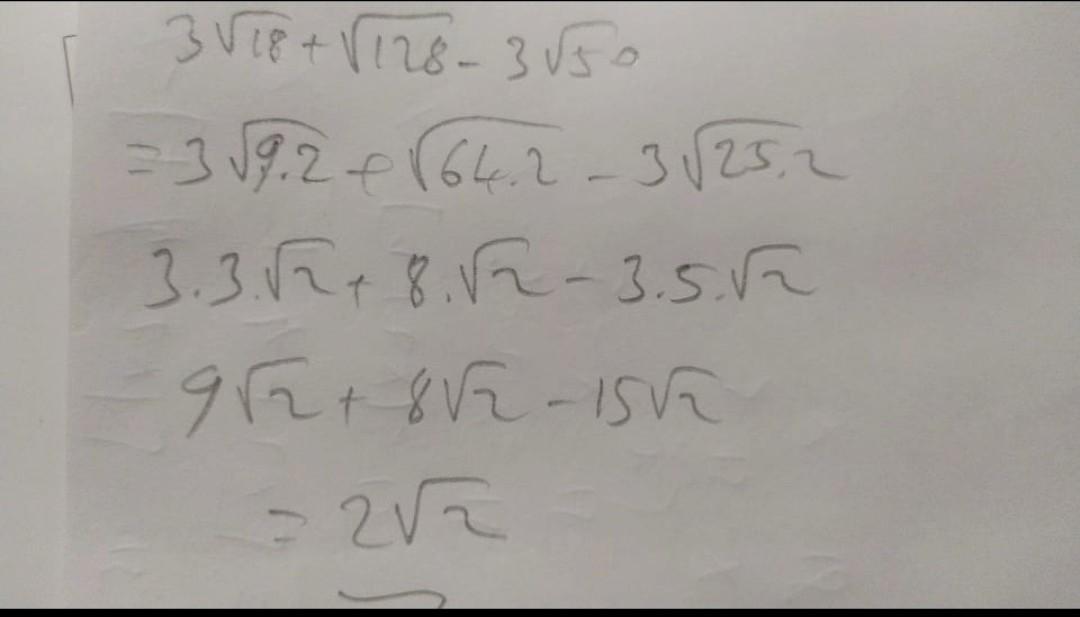 3√18 + √128 - 3√50
= 3√9.2 + √64.2 - 3√25.2
3.3.√2 + 8.√2 - 3.5.√2
9√2 + 8√2 - 15√2
= 2√2